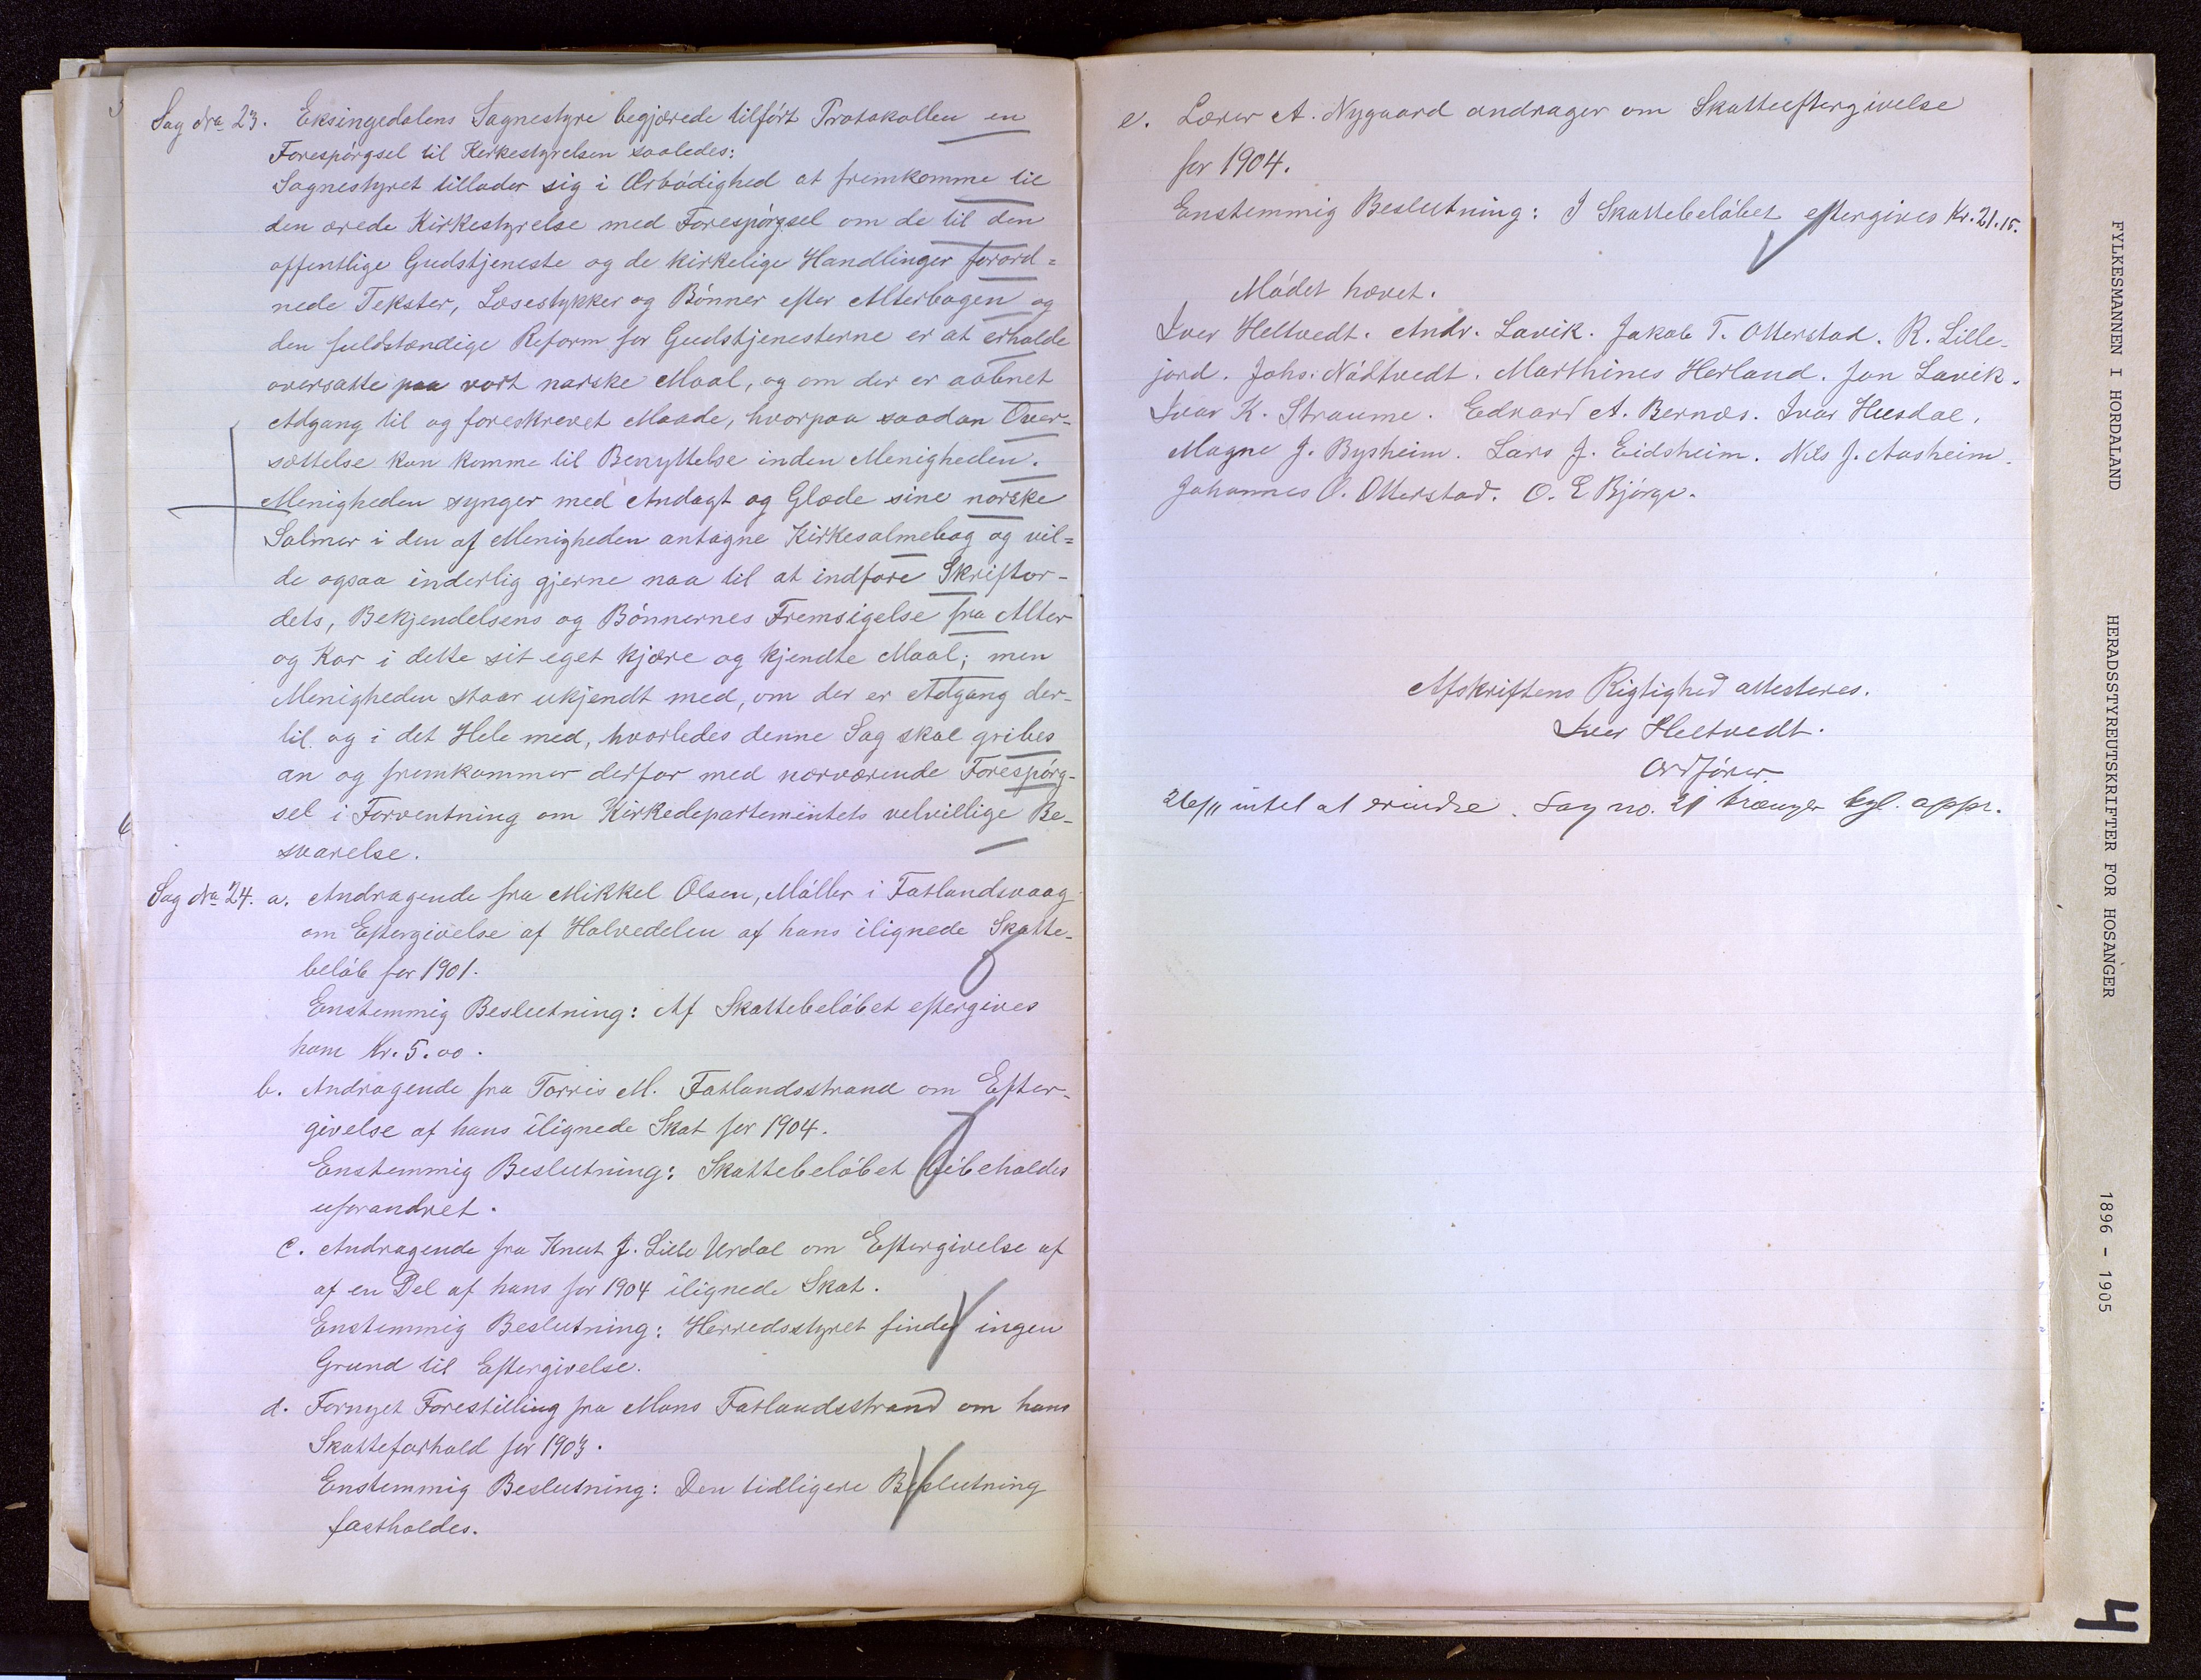 Sag No 23. Eksingedalens Sognestyre begjærede tilført Protokollen en
Forespørgsel til Kirkestyrelsen saaledes:
Sognestyret tillader sig i Ærbødighed at fremkomme til
den ærede Kirkestyrelse med Forespørgsel om de til den
offentlige Gudstjeneste og de kirkelige Handlinger forord=
nede Tekster, Læsestykker og Bønner efter Alterbogen og
den fuldstændige Reform for Gudstjenesterne er at erholde
oversatte paa vort norske Maal, og om der er aabnet
Adgang til og foreskrevet Maade, hvorpaa saadan Over-
sættelse kan komme til Benyttelse inden Menigheden.
Menigheden synger med Andagt og Glæde sine norske
Salmer i den af Menigheden antagne Kirkesalmebog og vil=
de ogsaa inderlig gjerne naa til at indføre Skriftor-
dets, Bekjendelsens og Bønnernes Fremsigelse fra Alter
og Kor i dette sit eget kjære og kjendte Maal; men
Menigheden staar ukjendt med, om der er Adgang der-
til og i det Hele med, hvorledes denne Sag skal gribes
an og fremkommer derfor med nærværende Forespørg-
sel i Forventning om Kirkedepartementets velvillige Be-
svarelse.
Sag No 24. a. Andragende fra Mikkel Olsen, Møller i Fatlandsvaag
om Eftergivelse af Halvedelen af hans ilignede Skatte-
beløb for 1901.
Enstemmig Beslutning: Af Skattebeløbet eftergives
ham Kr. 5.00.
b. Andragende fra Torris M. Fatlandsstrand om Efter-
givelse af hans ilignede Skat for 1904.
Enstemmig Beslutning: Skattebeløbet bibeholdes
uforandret.
c. Andragende fra Knut J. Lille Urdal om Eftergivelse af
af en Del af hans for 1904 ilignede Skat.
Enstemmig Beslutning: Herredsstyret finder ingen
Grund til Eftergivelse.
d. Fornyet Forestilling fra Mons Fatlandsstrand om hans
Skatteforhold for 1903.
Enstemmig Beslutning: Den tidligere Beslutning
fastholdes.
e. Lærer A. Nygaard andrager om Skatteeftergivelse
for 1904.
Enstemmig Beslutning: I Skattebeløbet eftergives Kr. 21.15.
Mødet hævet.
Iver Heltvedt. Andr. Lavik. Jakob T. Otterstad. R. Lille-
jord. Johs: Nødtvedt. Marthines Herland. Jon Lavik.
Ivar K. Straume. Edvard A. Bernæs. Ivar Husdal.
Magne J. Bysheim. Lars J. Eidsheim. Nils J. Aasheim.
Johannes O. Otterstad. O. E Bjørge.
Afskriftens Rigtighed attesteres.
Iver Heltvedt.
Ordfører.
26/11 intet at erindre. Sag no. 21 trænger kgl. appr.
FYLKESMANNEN I HORDALAND HERADSSTYREUTSKRIFTER FOR HOSANGER 1896 - 1905
4